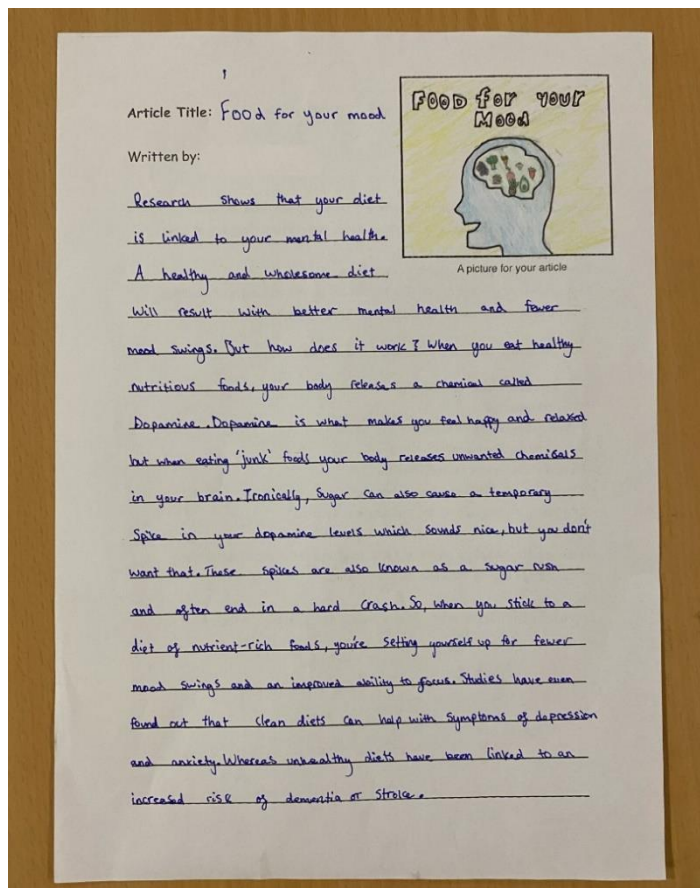 Article Title: Food for your mood
FOOD for YOUR
MOOD
Written by:
A picture for your article
Research shows that your diet
is linked to your mental health.
A healthy and wholesome diet
will result with better mental health and fewer
mood swings. But how does it work? When you eat healthy
nutritious foods, your body releases a chemical called
Dopamine. Dopamine is what makes you feel happy and relaxed
but when eating 'junk' foods your body releases unwanted chemicals
in your brain. Ironically, Sugar can also cause a temporary
Spike in your dopamine levels which sounds nice, but you don't
want that. These spikes are also known as a sugar rush
and often end in a hard crash. So, when you stick to a
diet of nutrient-rich foods, you're setting yourself up for fewer
mood swings and an improved ability to focus. Studies have even
found out that clean diets can help with symptoms of depression
and anxiety. Whereas unhealthy diets have been linked to an
increased risk of dementia or stroke.